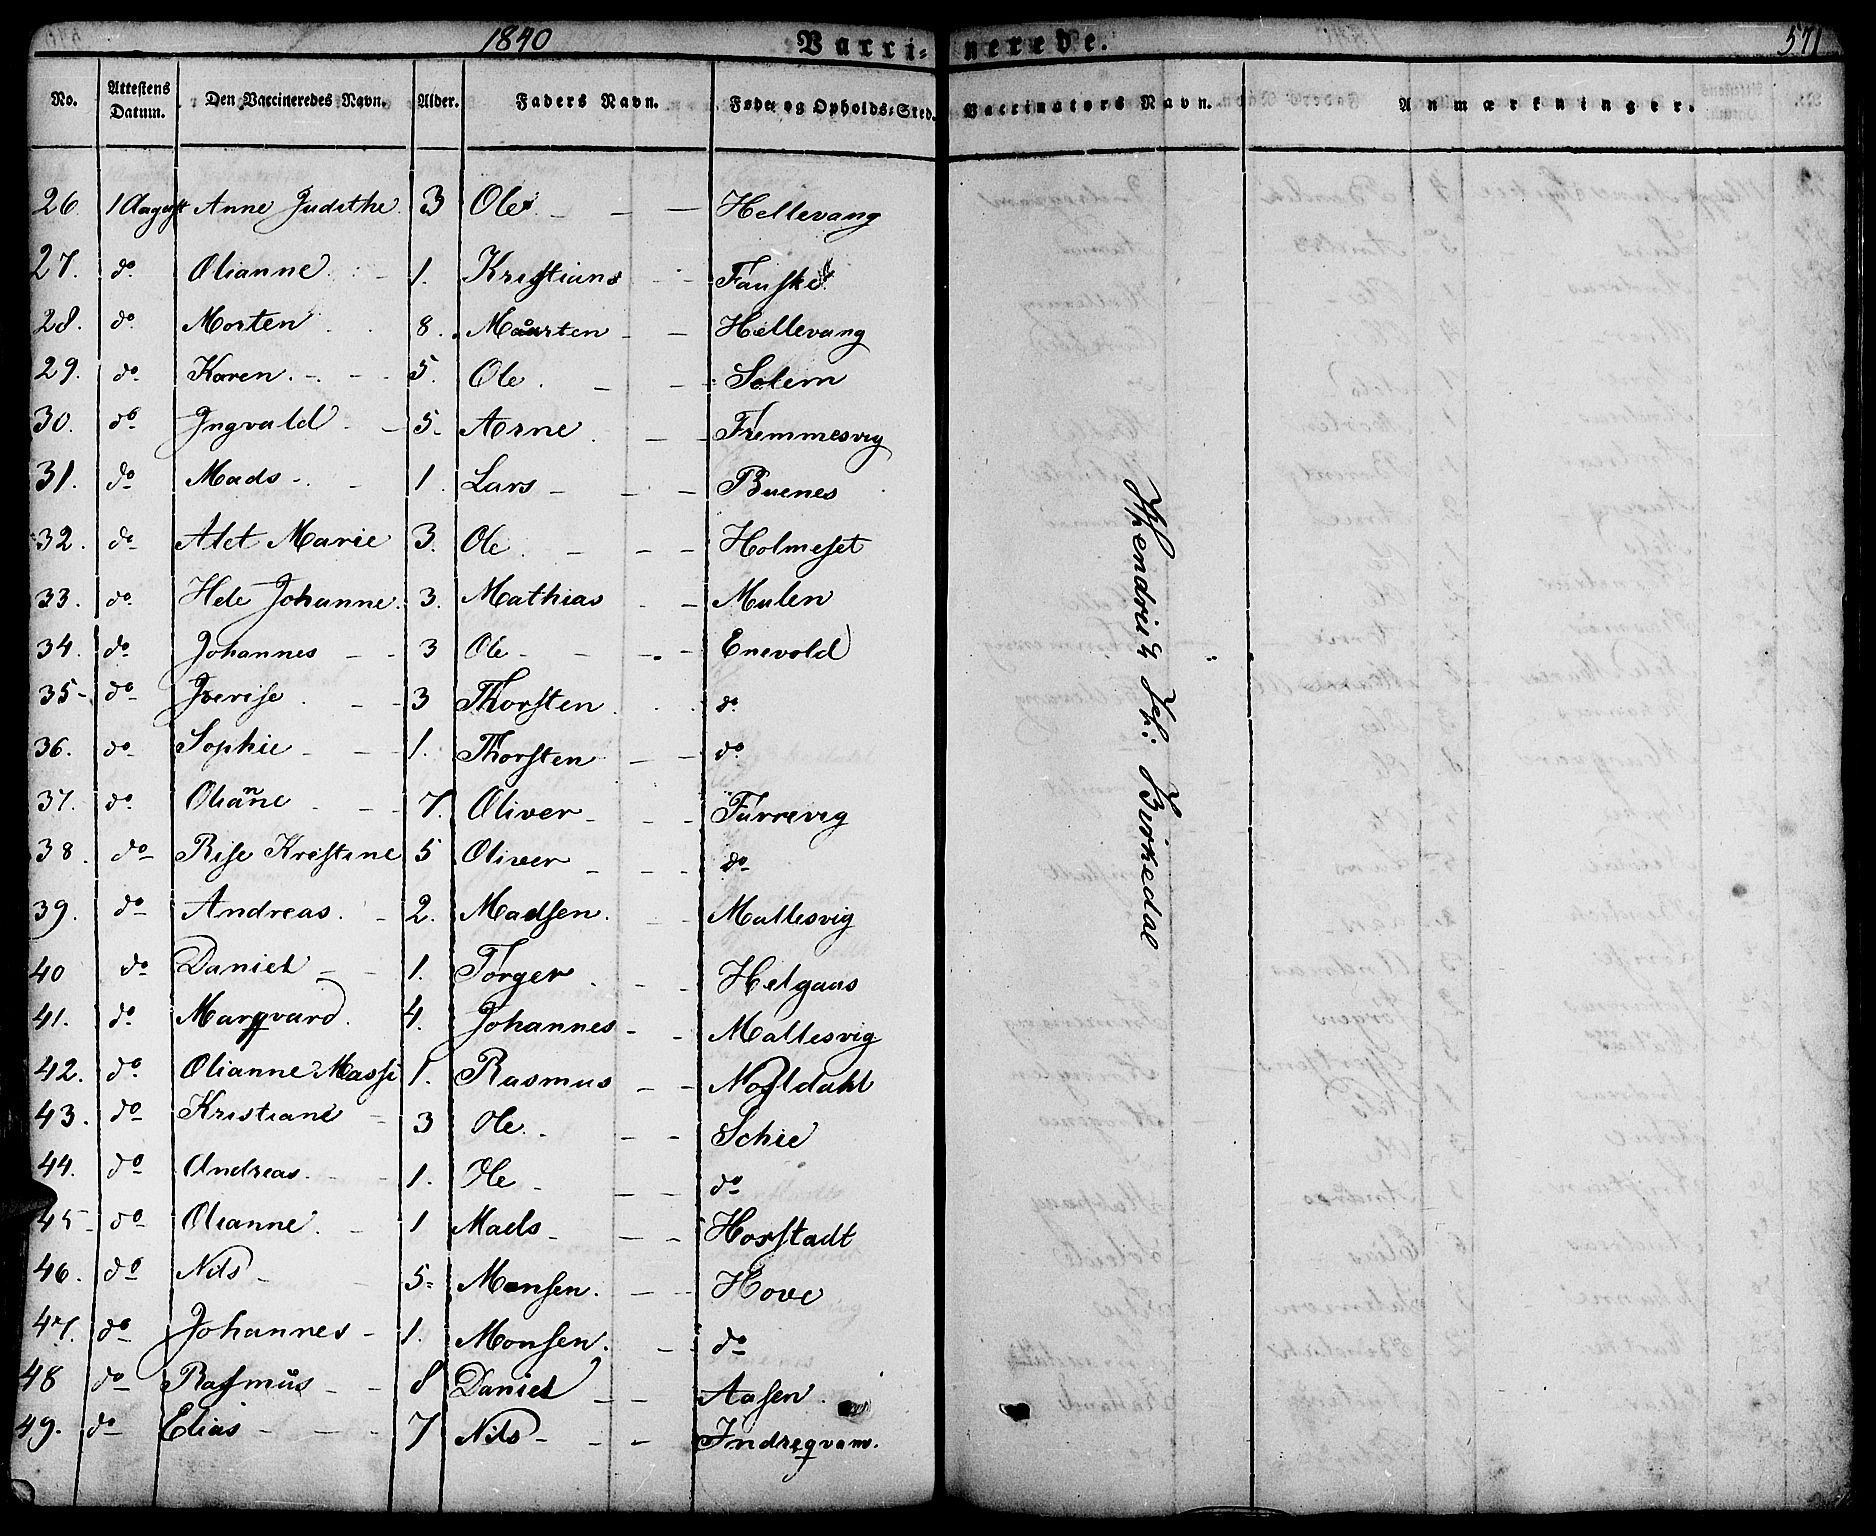 1840 Vacci- nerede. 571
No. Attestens Datum. Den Vaccineredes Navn. Alder. Faders Navn. Føde og Opholds-Sted. Vaccinators Navn. Anmærkninger.
26 1 August Anne Judithe 3 Ole Hellevang
27. do Olianne 1. Kristians Fauske
28. do Morten 8. Maarten Hellevang
29. do Karen 5. Ole Solem
30. do Ingvald 5 Arne Fremmesvig
31. do Mads 1. Lars Buenes
32. do Alet Marie 3. Ole Holmeset
33. do Hele Johanne 3. Mathias Mulen
34. do Johannes 3 Ole Enevold
35 do Iverise 3 Thorsten do
36. do Sophie 1. Thorsten do
37. do Olianne 7. Oliver Farrevig
38. do Rise Kristine 5 Oliver do
39. do Andreas 2. Madsen Mallesvig
40 do Daniel 1. Torger Helgaas
41. do Marqvard 4. Johannes Mallesvig
42. do Olianne Massi 1. Rasmus
43. do Kristiane 3 Ole Schie
44. do Andreas 1. Ole do
45 do Olianne 1 Mads Horstadt
46. do Nils 5 Monsen Hove
47. do Johannes 1. Monsen do
48 do Rasmus 8 Daniel Aasen
49. do Elias 7 Nils Indreqvam.
Hendrick Birkedal